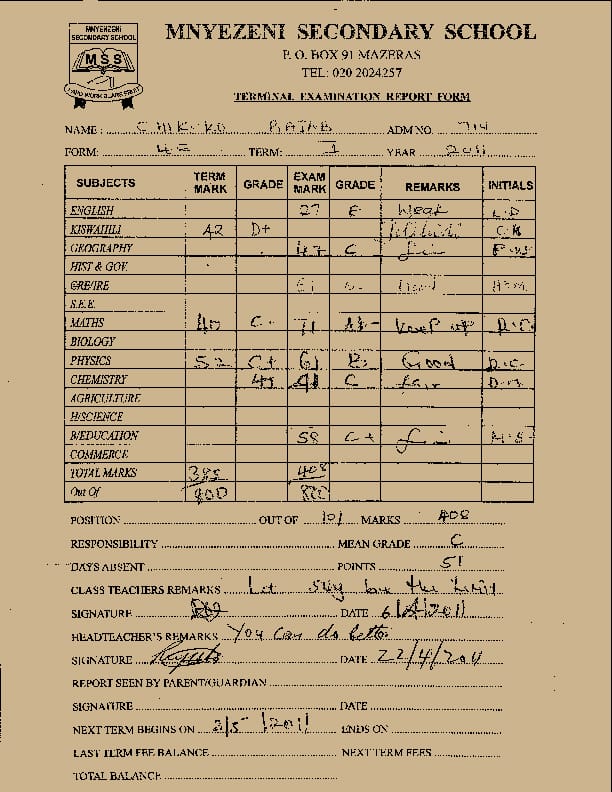 MNYEZENI
SECONDARY SCHOOL
MSS
MNYEZENI SECONDARY SCHOOL
P. O. BOX 91 MAZERAS
TEL: 020 2024257
TERMINAL EXAMINATION REPORT FORM
NAME : RAJAB ADM NO. 714
FORM: 4E TERM: I YEAR 2011
SUBJECTS TERM MARK GRADE EXAM MARK GRADE REMARKS INITIALS
ENGLISH 27 E Weak
KISWAHILI 42 D+
GEOGRAPHY 47 C
HIST & GOV.
CRE/IRE 61
S.E.E.
MATHS 40 71 Keep up
BIOLOGY
PHYSICS 52 C+ 61 Good
CHEMISTRY C fair
AGRICULTURE
H/SCIENCE
B/EDUCATION 58 C+
COMMERCE
TOTAL MARKS 385 408
Out Of 800
POSITION OUT OF 101 MARKS 408
RESPONSIBILITY MEAN GRADE C
DAYS ABSENT POINTS 51
CLASS TEACHERS REMARKS Let sky be the limit
SIGNATURE DATE 6/4/2011
HEADTEACHER'S REMARKS You can do better
SIGNATURE DATE 22/4/2011
REPORT SEEN BY PARENT/GUARDIAN
SIGNATURE DATE
NEXT TERM BEGINS ON 2/5/2011 ENDS ON
LAST TERM FEE BALANCE NEXT TERM FEES
TOTAL BALANCE